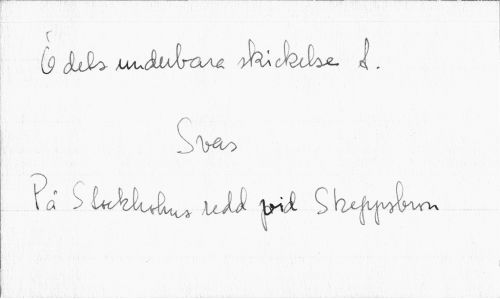 Ödets underbara skickelse f.
Svas
På Stockholms redd vid Skeppsbron